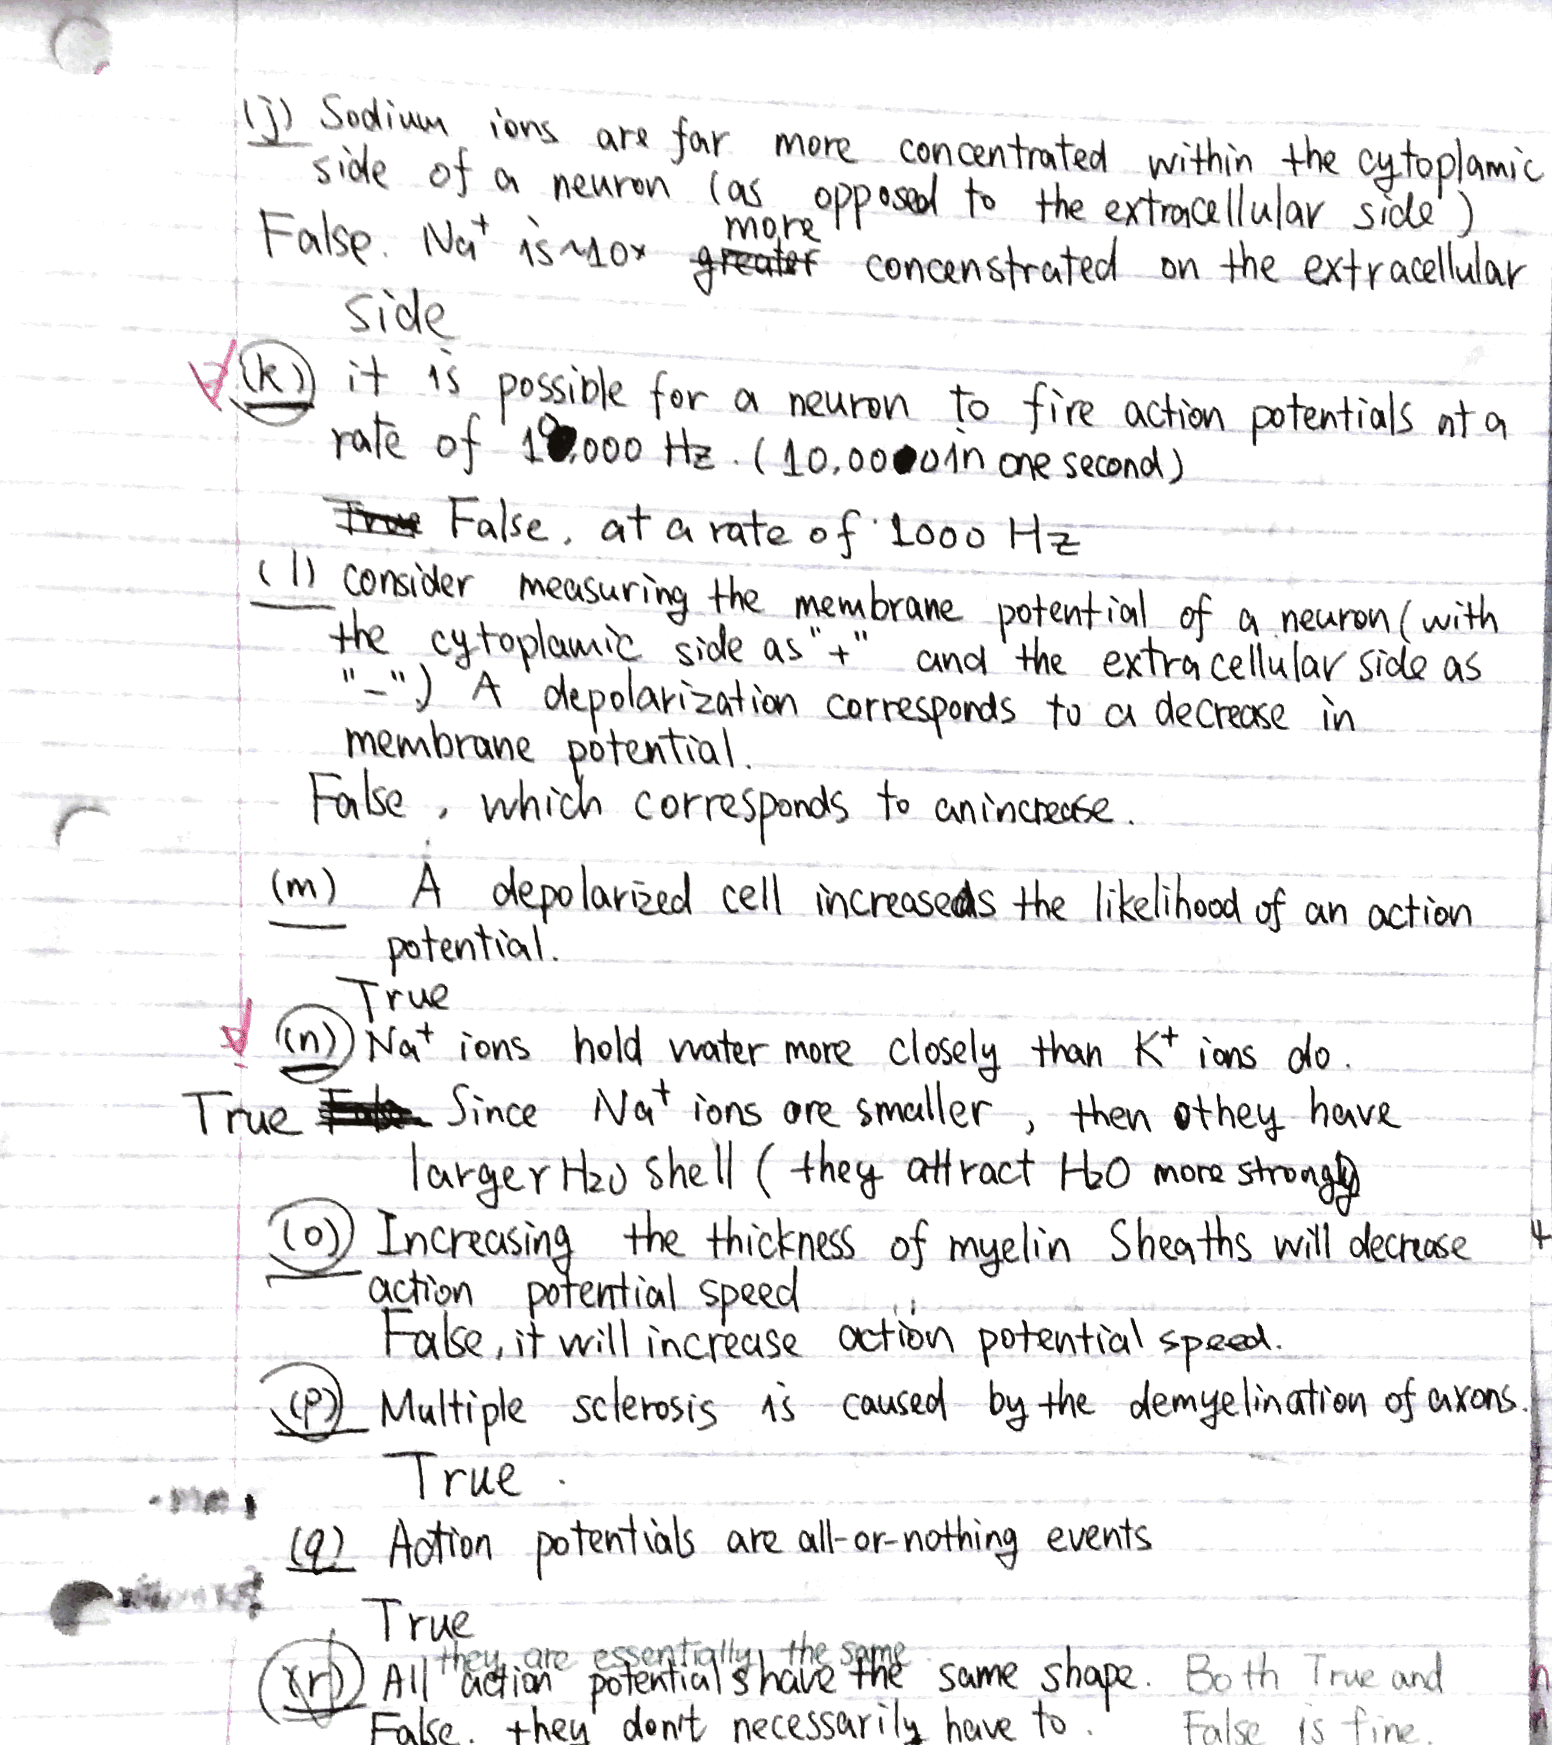 (j) Sodium ions are far more concentrated within the cytoplamic
side of a neuron (as opposed to the extracellular side)
False. Na⁺ is ~10x greater more concenstrated on the extracellular
side
(k) it is possible for a neuron to fire action potentials at a
rate of 10,000 Hz. (10,000 in one second)
True False, at a rate of 1000 Hz
(l) consider measuring the membrane potential of a neuron (with
the cytoplamic side as "+" and the extracellular side as
"-") A depolarization corresponds to a decrease in
membrane potential.
False, which corresponds to an increase.
(m) A depolarized cell increases the likelihood of an action
potential.
True
(n) Na⁺ ions hold water more closely than K⁺ ions do.
True False Since Na⁺ ions are smaller, then they have
larger H2O shell (they attract H2O more strongly
(o) Increasing the thickness of myelin Sheaths will decrease
action potential speed
False, it will increase action potential speed.
(p) Multiple sclerosis is caused by the demyelination of axons.
True.
(q) Action potentials are all-or-nothing events
True
they are essentially the same
(r) All action potentials have the same shape. Both True and
False. they don't necessarily have to. False is fine.